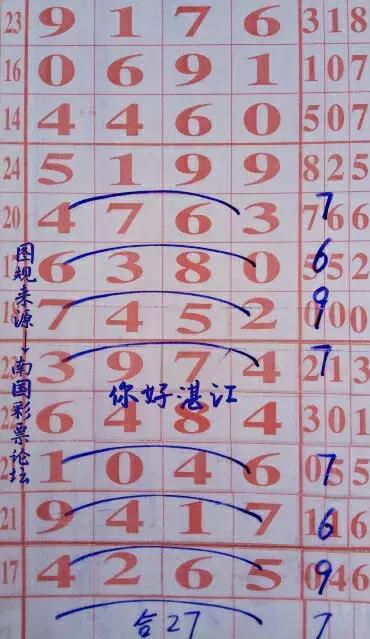 23 9 1 7 6 318
16 0 6 9 1 107
14 4 4 6 0 507
24 5 1 9 9 825
20 4 7 6 3 766 7
6 3 8 0 552 6
7 4 5 2 000 9
3 9 7 4 213 7
你好湛江
6 4 8 4 301
1 0 4 6 055 7
21 9 4 1 7 116 6
17 4 2 6 5 046 9
合27 7
图规来源→南国彩票论坛